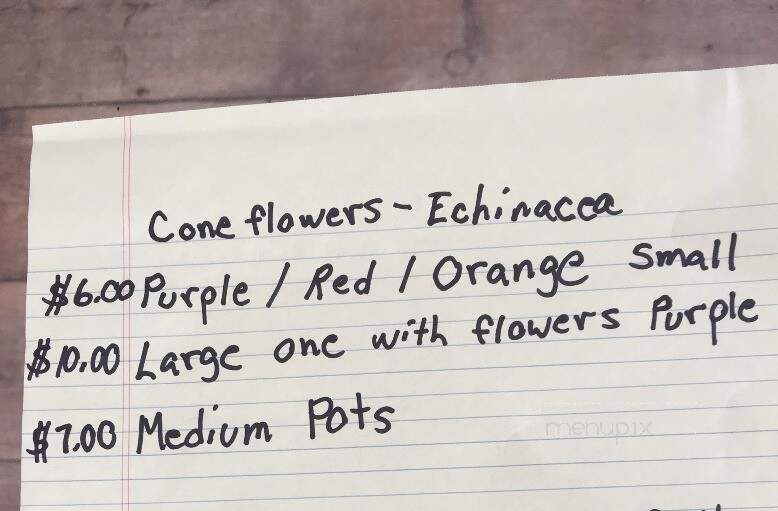 Cone flowers - Echinacea
$6.00 Purple / Red / Orange Small
$10.00 Large one with flowers Purple
$7.00 Medium Pots
menupix